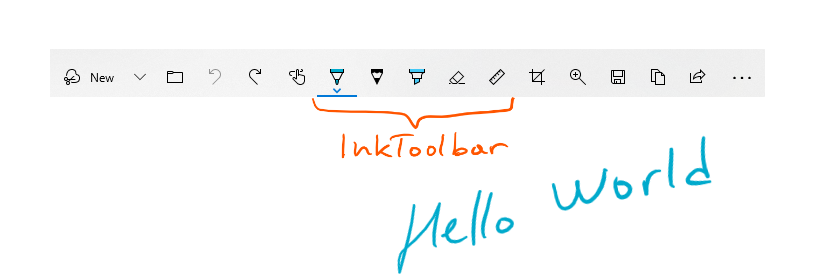 New
InkToolbar
Hello World